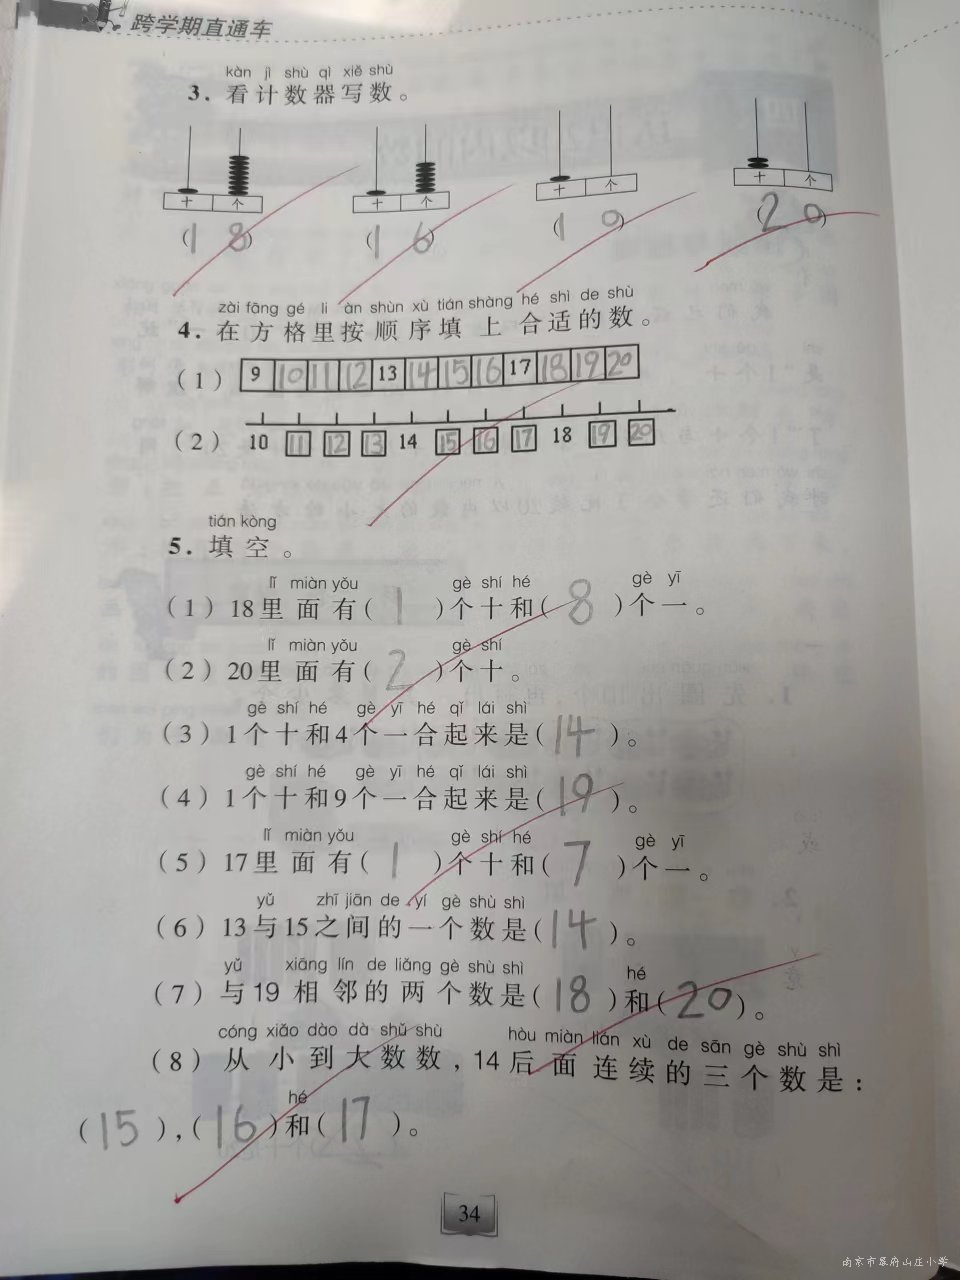 跨学期直通车
kàn jì shù qì xiě shù
3. 看计数器写数。
十 个 十 个 十 个 十 个
(18) (16) (10) (20)
zài fāng gé li àn shùn xù tián shàng hé shì de shù
4. 在方格里按顺序填上合适的数。
(1) 9 10 11 12 13 14 15 16 17 18 19 20
(2) 10 11 12 13 14 15 16 17 18 19 20
tián kòng
5. 填空。
lǐ miàn yǒu gè shí hé gè yī
(1) 18里面有( 1 )个十和( 8 )个一。
lǐ miàn yǒu gè shí
(2) 20里面有( 2 )个十。
gè shí hé gè yī hé qǐ lái shì
(3) 1个十和4个一合起来是( 14 )。
gè shí hé gè yī hé qǐ lái shì
(4) 1个十和9个一合起来是( 19 )。
lǐ miàn yǒu gè shí hé gè yī
(5) 17里面有( 1 )个十和( 7 )个一。
yǔ zhī jiān de yí gè shù shì
(6) 13与15之间的一个数是( 14 )。
yǔ xiāng lín de liǎng gè shù shì hé
(7) 与19相邻的两个数是( 18 )和( 20 )。
cóng xiǎo dào dà shǔ shù hòu miàn lián xù de sān gè shù shì
(8) 从小到大数数,14后面连续的三个数是:
hé
( 15 ),( 16 )和( 17 )。
34